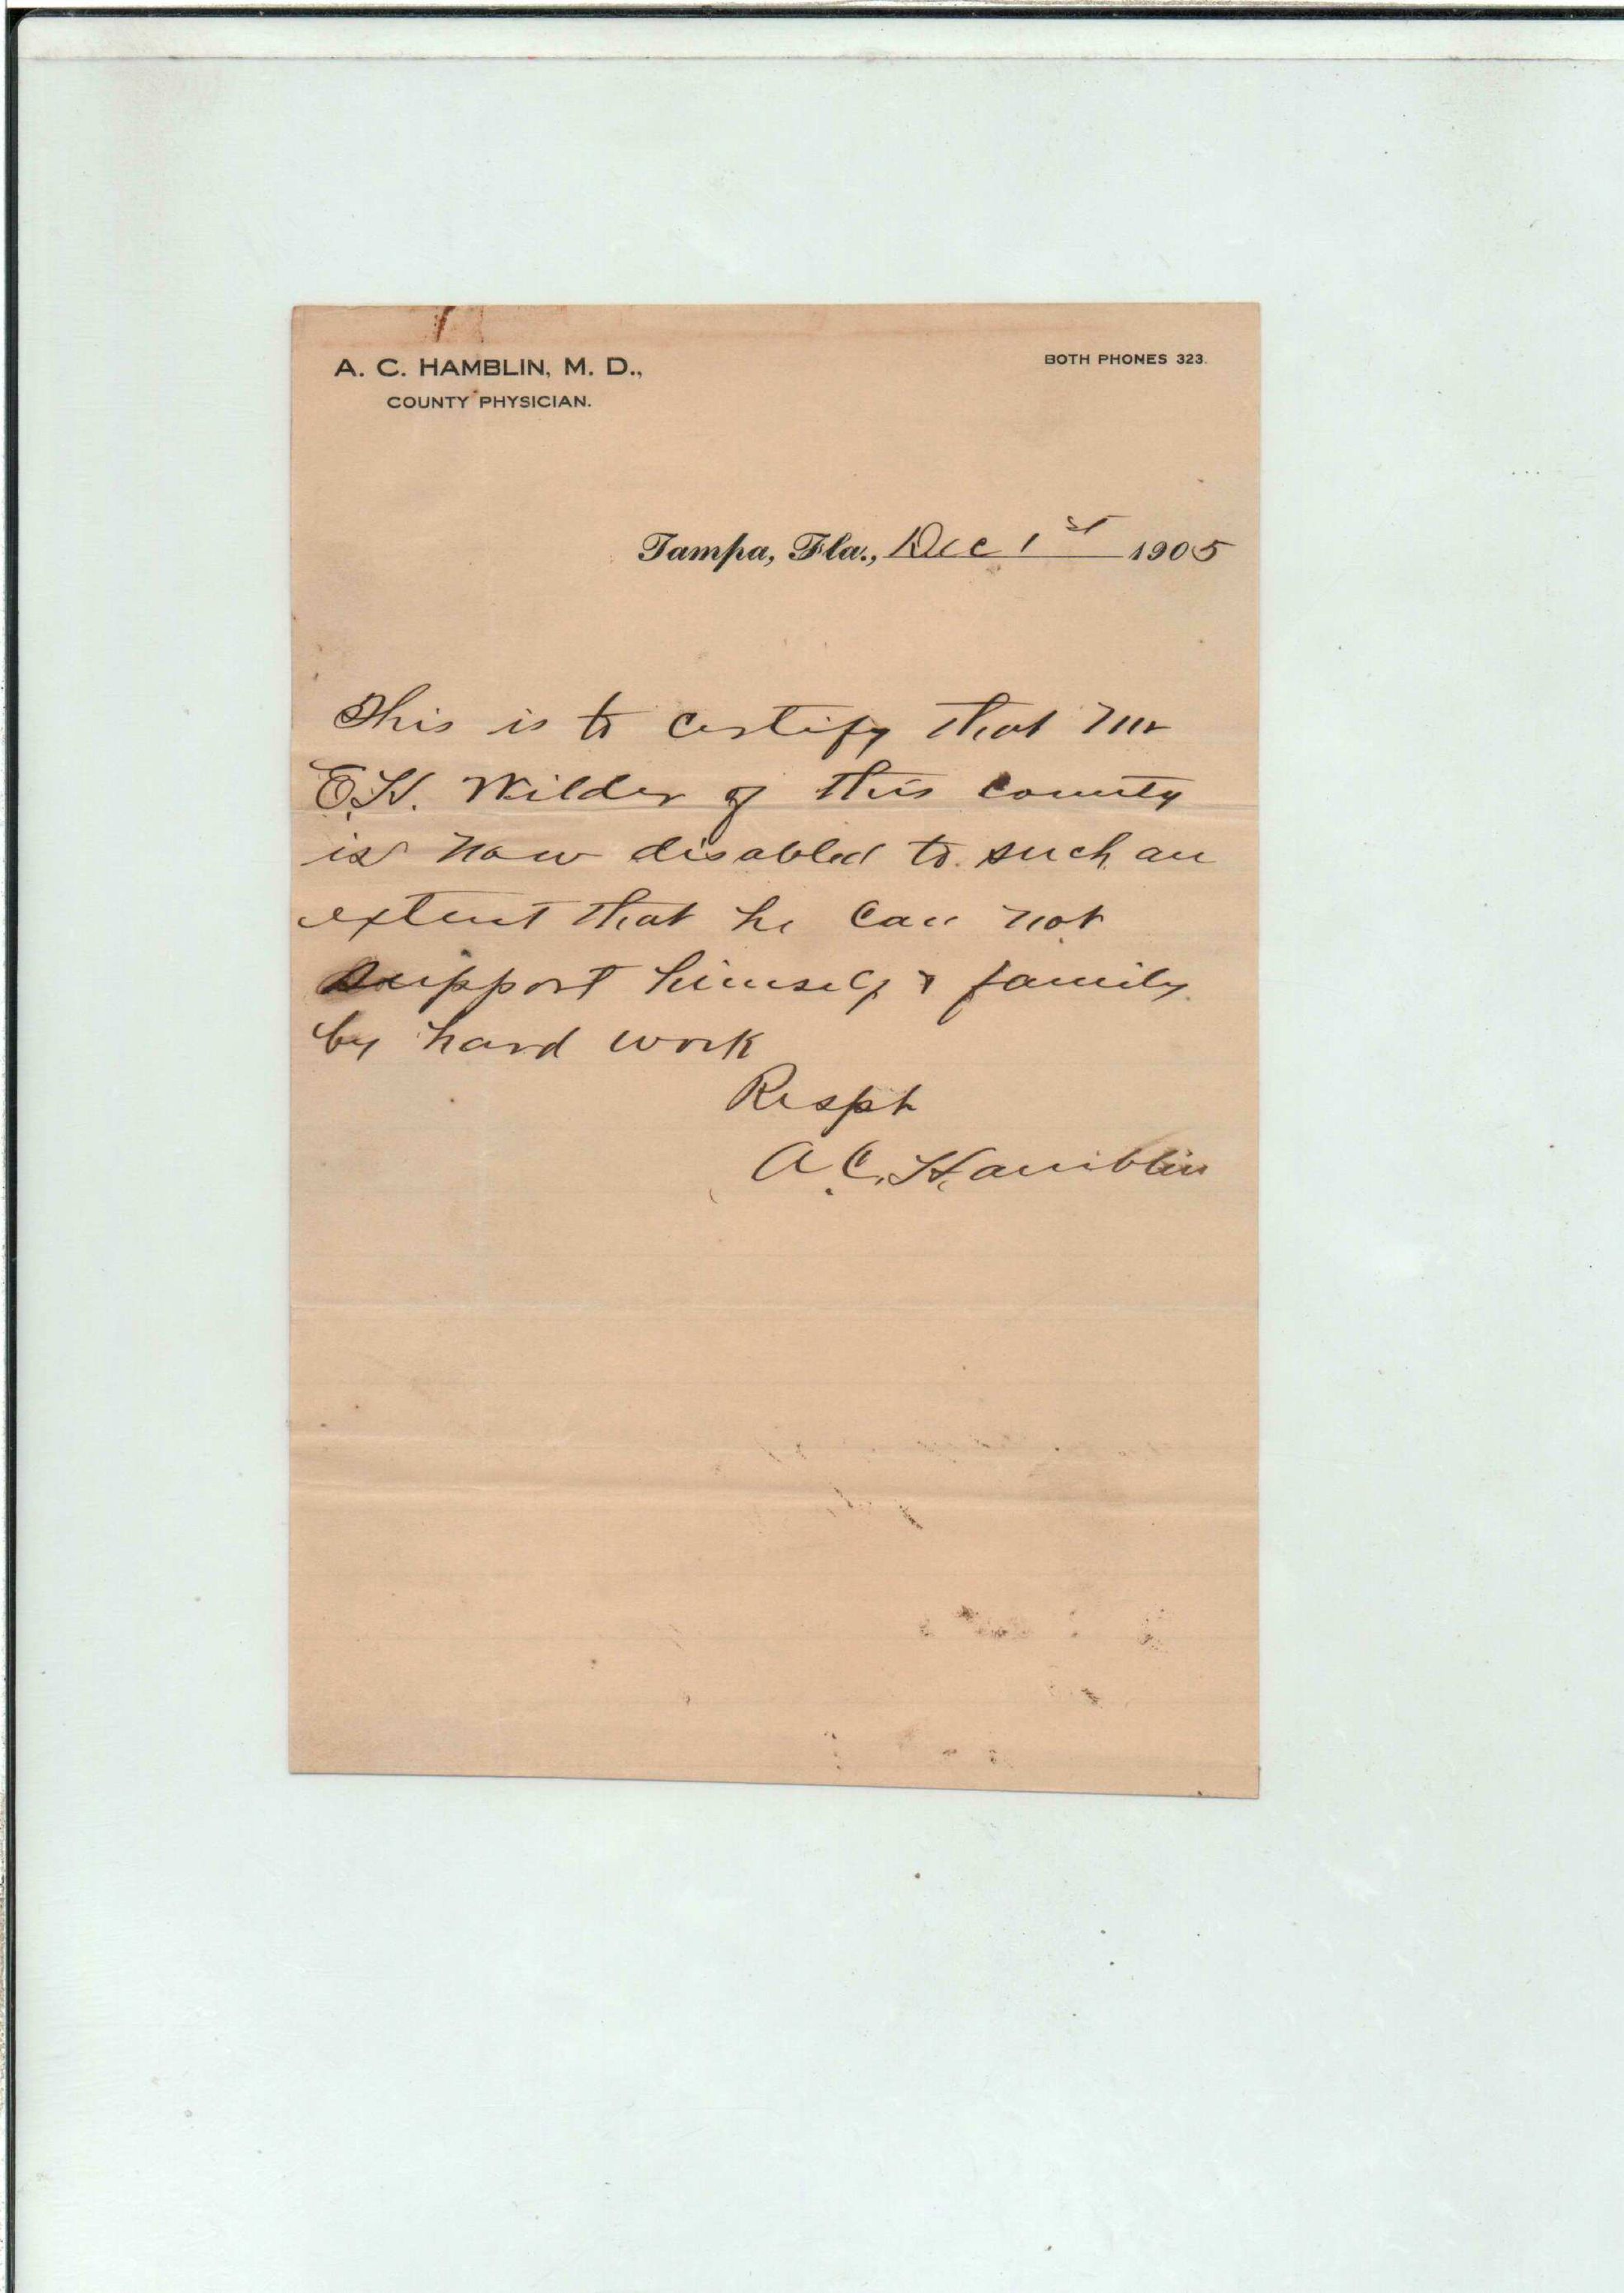 A. C. HAMBLIN, M. D.,
COUNTY PHYSICIAN.
BOTH PHONES 323.
Tampa, Fla., Dec 1st 1905
This is to certify that Mr
E.H. Wilder of this county
is now disabled to such an
extent that he can not
support himself & family
by hard work
Respt
A.C. Hamblin